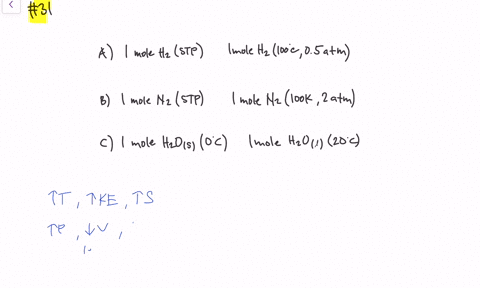 #31
A) 1 mole H₂ (STP) 1 mole H₂ (100°C, 0.5 atm)
B) 1 mole N₂ (STP) 1 mole N₂ (100K, 2 atm)
C) 1 mole H₂O(s) (0°C) 1 mole H₂O(l) (20°C)
↑T, ↑KE, ↑S
↑P, ↓V,